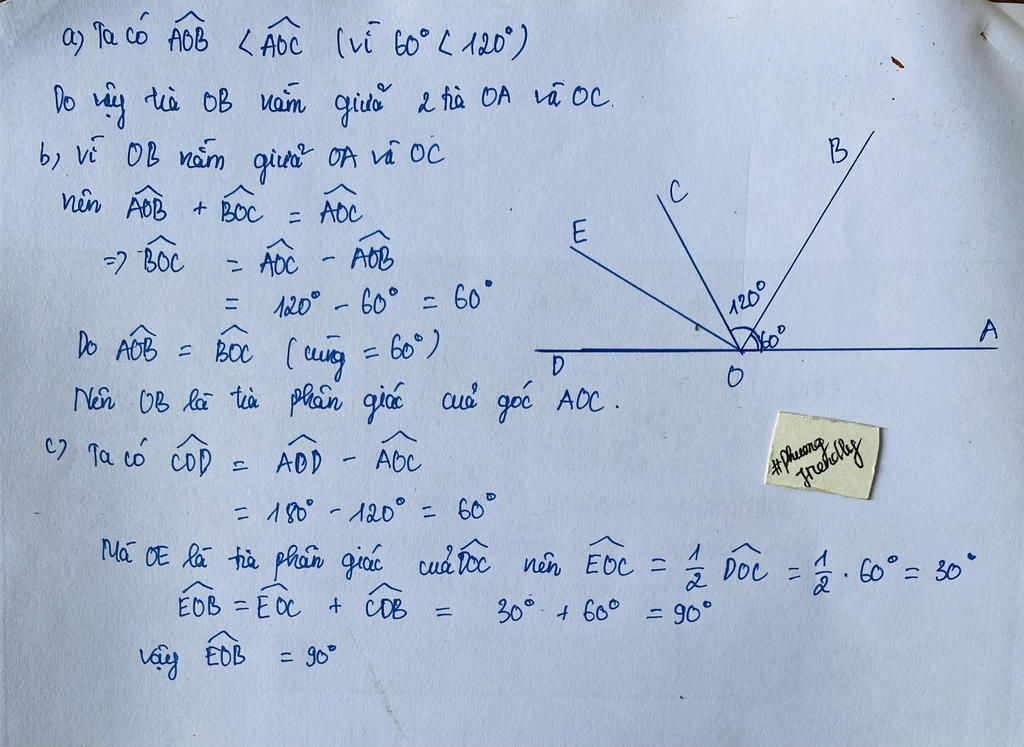 a) Ta có AÔB < AÔC (vì 60° < 120°)
Do vậy tia OB nằm giữa 2 tia OA và OC.
b) vì OB nằm giữa OA và OC
nên AÔB + BÔC = AÔC
=> BÔC = AÔC - AÔB
= 120° - 60° = 60°
Do AÔB = BÔC (cùng = 60°)
Nên OB là tia phân giác của góc AOC.
c) Ta có CÔD = AÔD - AÔC
= 180° - 120° = 60°
Mà OE là tia phân giác của DÔC nên EÔC = 1/2 DÔC = 1/2 . 60° = 30°
EÔB = EÔC + CÔB = 30° + 60° = 90°
vậy EÔB = 90°
B
C
E
120°
60°
A
D
O
#Phuong
friendly